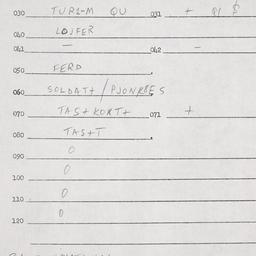 030 TUR1-M QU 031 + Q1 $
040 LØJFER
041 — 042 –
050 FERD
060 SOLDAT+ / PJONKRES
070 TAS+KORT+ 071 +
080 TAS+T
090 0
100 0
110 0
120 0